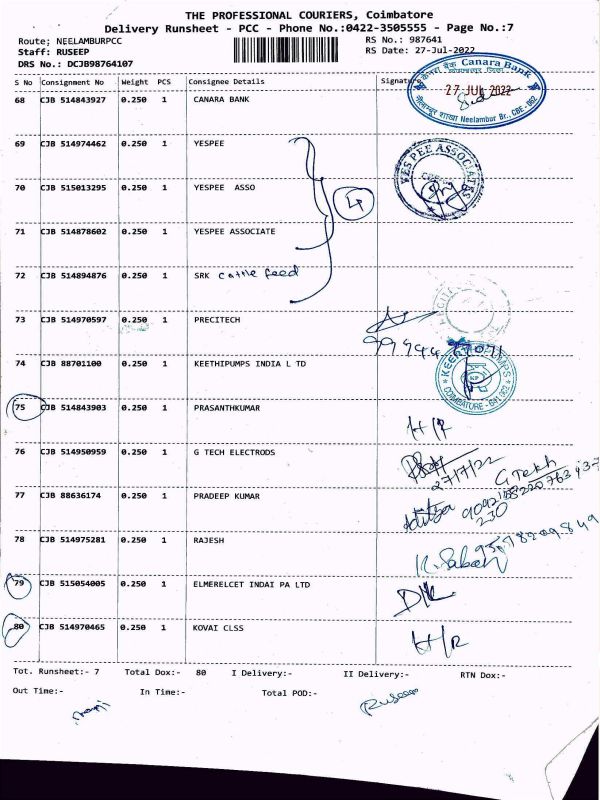 THE PROFESSIONAL COURIERS, Coimbatore
Delivery Runsheet - PCC - Phone No.:0422-3505555 - Page No.:7
Route; NEELAMBURPCC RS No.: 987641
Staff: RUSEEP RS Date: 27-Jul-2022
DRS No.: DCJB98764107
S No Consignment No Weight PCS Consignee Details Signature
केनरा बैंक Canara Bank
27 JUL 2022
Neelambur Br., CBE - 062
68 CJB 514843927 0.250 1 CANARA BANK
69 CJB 514974462 0.250 1 YESPEE
YES PEE ASSOCIATES
70 CJB 515013295 0.250 1 YESPEE ASSO
4
71 CJB 514878602 0.250 1 YESPEE ASSOCIATE
72 CJB 514894876 0.250 1 SRK cattle feed
73 CJB 514970597 0.250 1 PRECITECH
74 CJB 88701100 0.250 1 KEETHIPUMPS INDIA L TD
COIMBATORE - 641 062
75 CJB 514843903 0.250 1 PRASANTHKUMAR
H/R
76 CJB 514950959 0.250 1 G TECH ELECTRODS
27/7/22
G Tekh
77 CJB 88636174 0.250 1 PRADEEP KUMAR
78 CJB 514975281 0.250 1 RAJESH
79 CJB 515054005 0.250 1 ELMERELCET INDAI PA LTD
D/L
80 CJB 514970465 0.250 1 KOVAI CLSS
H/R
Tot. Runsheet:- 7 Total Dox:- 80 I Delivery:- II Delivery:- RTN Dox:-
Out Time:- In Time:- Total POD:-
Ruseep